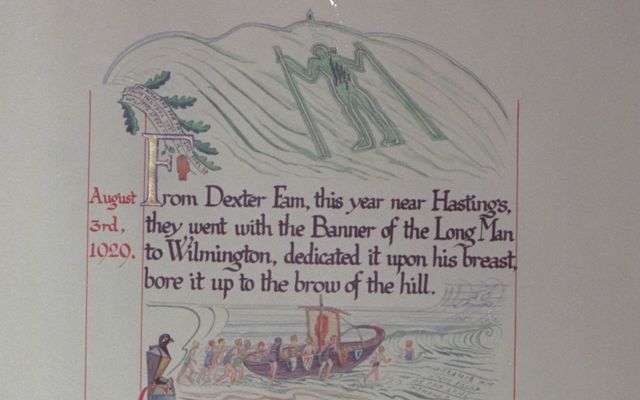 August
3rd,
1929.
From Dexter Fam, this year near Hastings,
they went with the Banner of the Long Man
to Wilmington, dedicated it upon his breast,
bore it up to the brow of the hill.